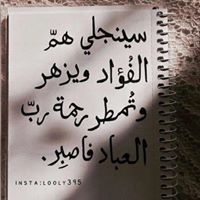 سينجلي همّ
الفُؤاد ويزهر
وتُمطر رحمة ربّ
العباد فاصبِر.
INSTA:LOOLY395